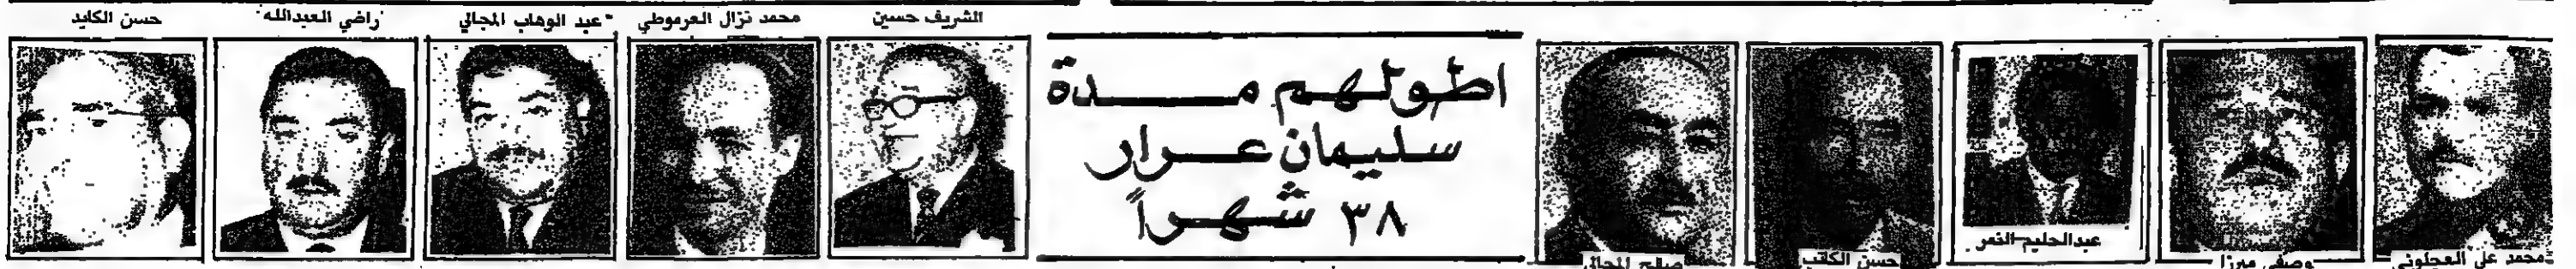 محمد علي العجلوني
وصفي ميرزا
عبدالحليم النمر
حسن الكاتب
صالح المجالي
اطولهم مدة
سليمان عرار
٣٨ شهراً
الشريف حسين
محمد نزال العرموطي
عبد الوهاب المجالي
راضي العبدالله
حسن الكايد